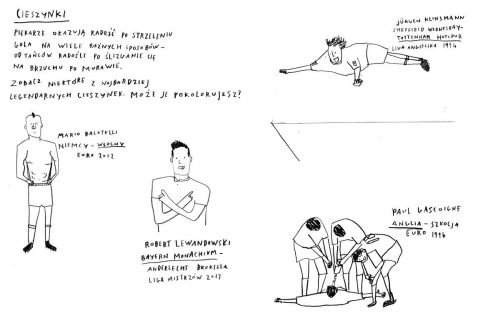 CIESZYNKI
PIŁKARZE OKAZUJĄ RADOŚĆ PO STRZELENIU
GOLA NA WIELE RÓŻNYCH SPOSOBÓW –
OD TAŃCÓW RADOŚCI PO ŚLIZGANIE SIĘ
NA BRZUCHU PO MURAWIE.
ZOBACZ NIEKTÓRE Z NAJBARDZIEJ
LEGENDARNYCH CIESZYNEK. MOŻE JE POKOLORUJESZ?
JÜRGEN KLINSMANN
SHEFFIELD WEDNESDAY –
TOTTENHAM HOTSPUR
LIGA ANGIELSKA 1994
MARIO BALOTELLI
NIEMCY – WŁOCHY
EURO 2012
ROBERT LEWANDOWSKI
BAYERN MONACHIUM –
ANDERLECHT BRUKSELA
LIGA MISTRZÓW 2017
PAUL GASCOIGNE
ANGLIA – SZKOCJA
EURO 1996